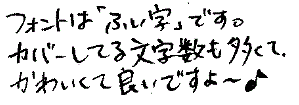 フォントは「ふい字」です。
カバーしてる文字数も多くて、
かわいくて良いですよ〜♪